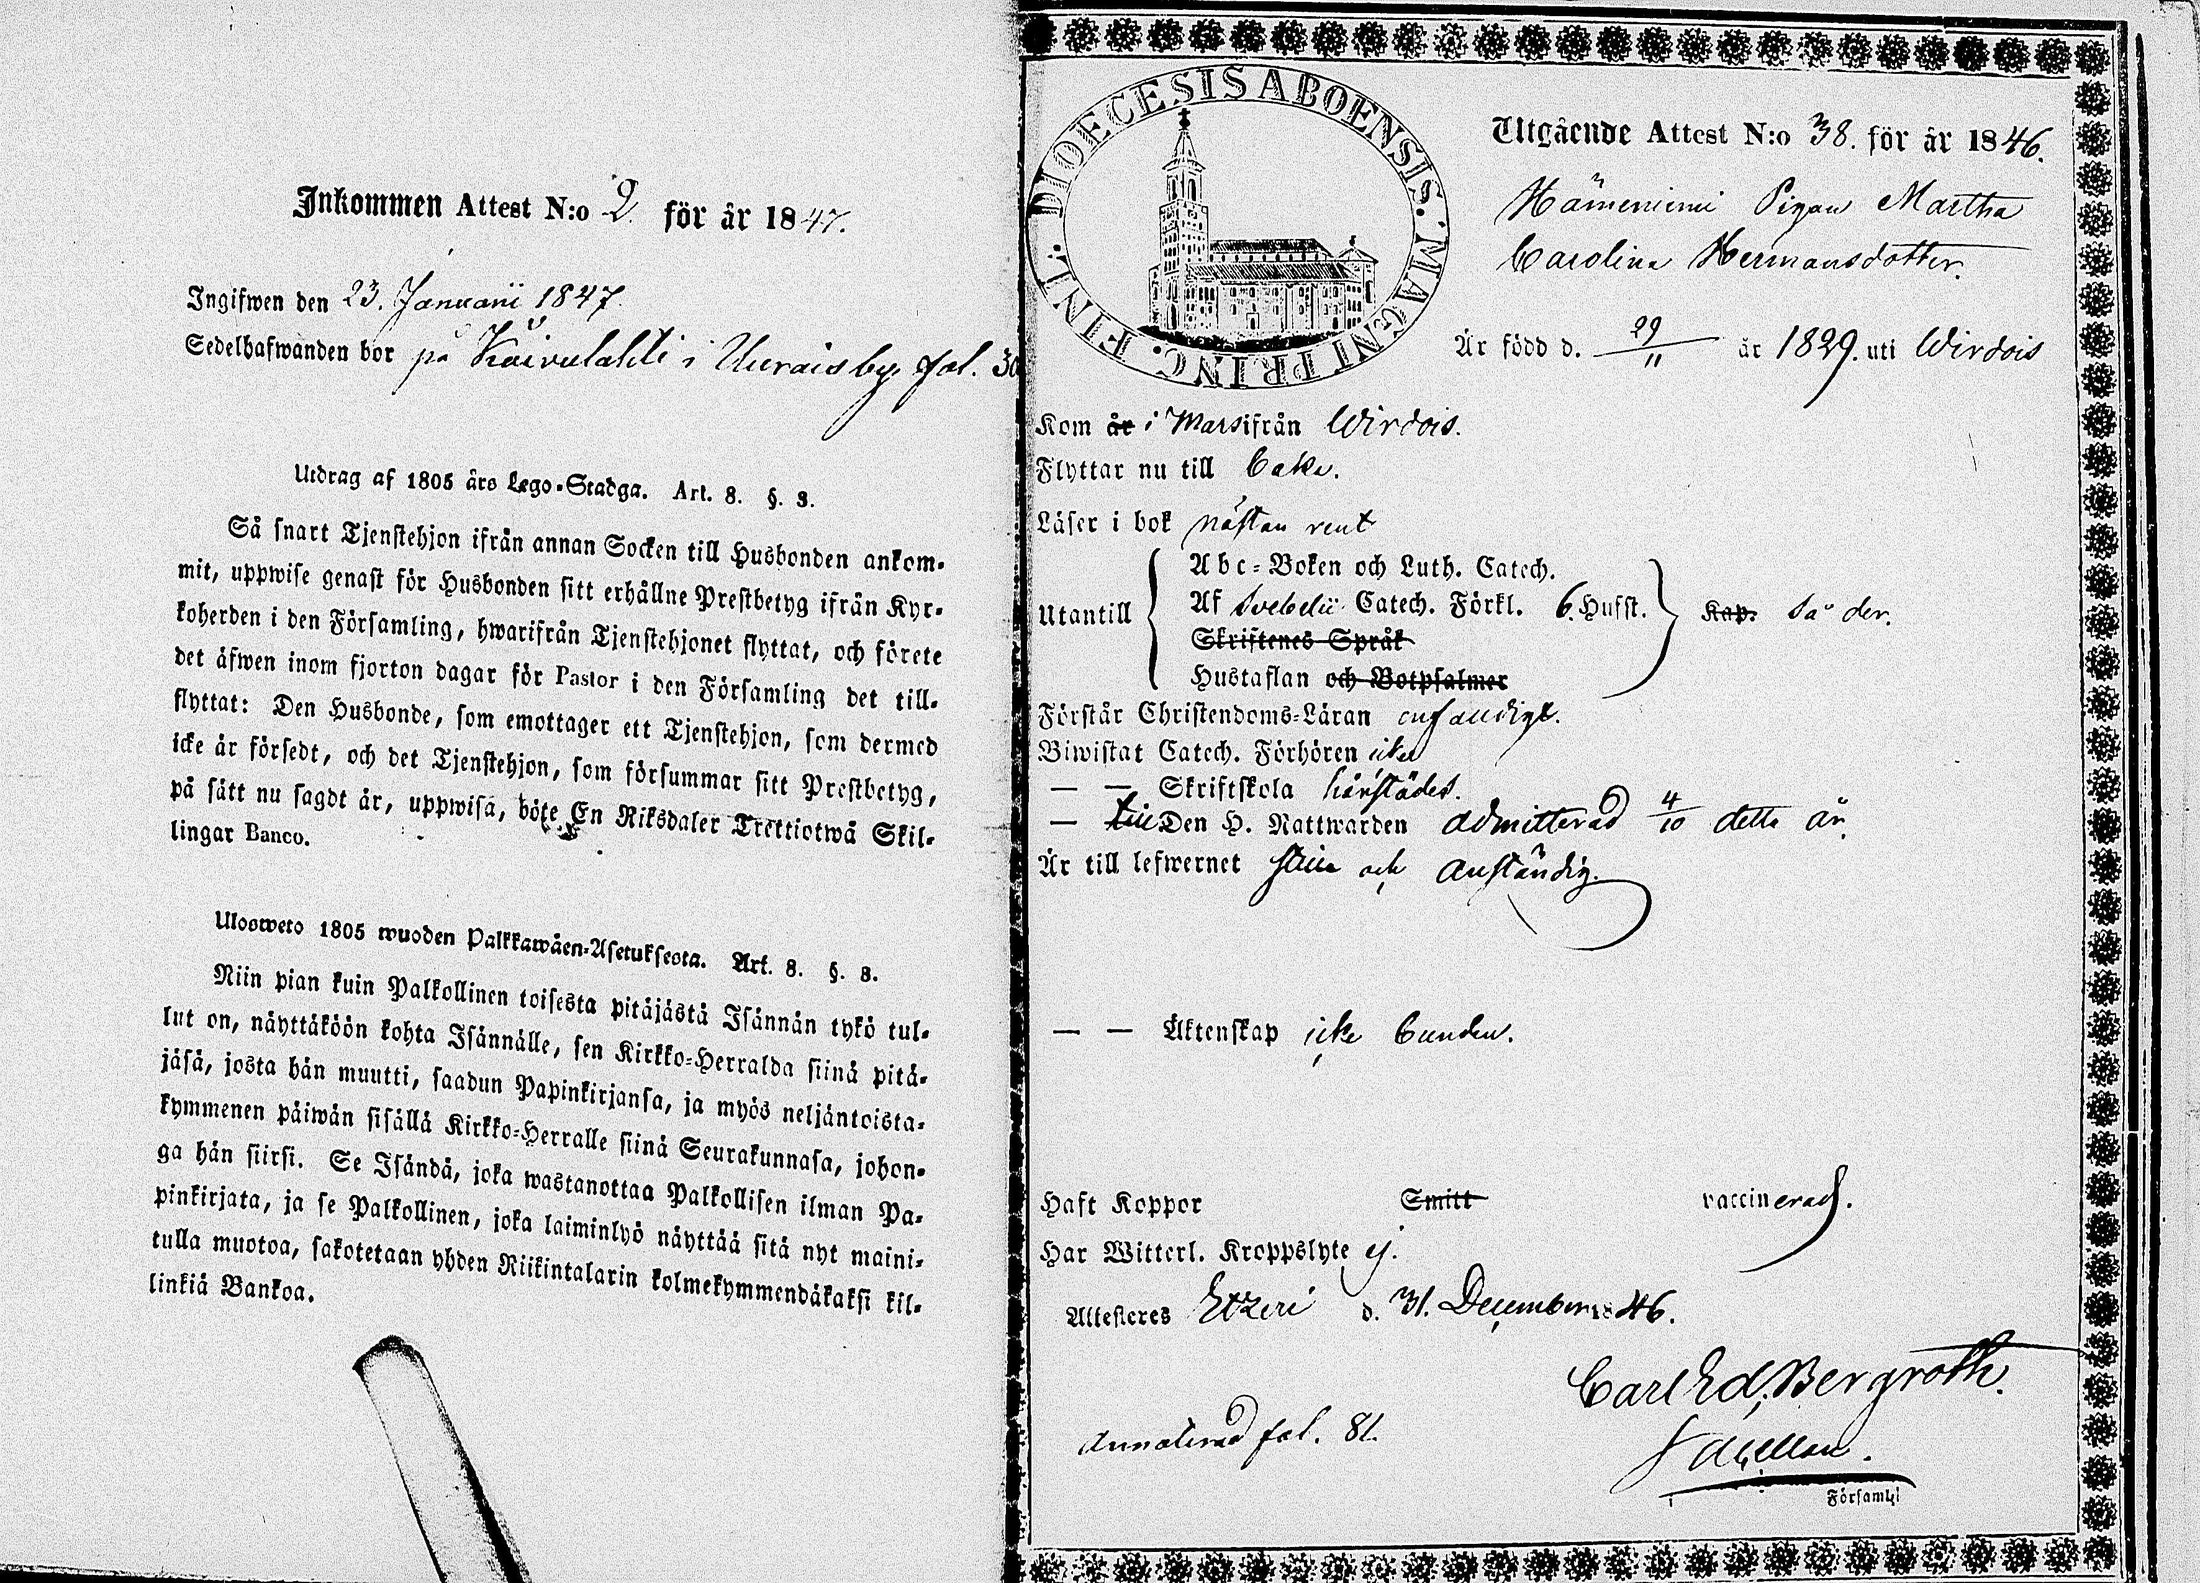 Inkommen Attest N:o 2. för år 1847.
Ingifwen den 23. Januarii 1847.
Sedelhafwanden bor på Koivulahti i Uurais by. fol. 30
Utdrag af 1805 års Lego-Stadga. Art. 8. §. 3.
Så snart Tjenstehjon ifrån annan Socken till Husbonden ankom-
mit, uppwise genast för Husbonden sitt erhållne Prestbetyg ifrån Kyr-
koherden i den Församling, hwarifrån Tjenstehjonet flyttat, och förete
det äfwen inom fjorton dagar för Pastor i den Församling det till-
flyttat: Den Husbonde, som emottager ett Tjenstehjon, som dermed
icke är försedt, och det Tjenstehjon, som försummar sitt Prestbetyg,
på sätt nu sagdt är, uppwisa, böte En Riksdaler Trettiotwå Skil-
lingar Banco.
Ulosweto 1805 wuoden Palkkawäen-Asetuksesta. Art. 8. §. 3.
Niin pian kuin Palkollinen toisesta pitäjästä Isännän tykö tul-
lut on, näyttäköön kohta Isännälle, sen Kirkko-Herralda siinä pitä-
jäsä, josta hän muutti, saadun Papinkirjansa, ja myös neljäntoista-
kymmenen päiwän sisällä Kirkko-Herralle siinä Seurakunnasa, johon-
ga hän siirsi. Se Isändä, joka wastanottaa Palkollisen ilman Pa-
pinkirjata, ja se Palkollinen, joka laiminlyö näyttää sitä nyt maini-
tulla muotoa, sakotetaan yhden Riikintalarin kolmekymmendäkaksi kil-
linkiä Bankoa.
FINL. DIOECESIS ABOENSIS. MAGNI PRINC.
Utgående Attest N:o 38. för år 1846.
Hämeniemi Pigan Martha
Carolina Hermansdotter.
Är född d. 29/11 år 1829. uti Wirdois
Kom år i Mars ifrån Wirdois.
Flyttar nu till
Läser i bok nästan rent
Abc-Boken och Luth. Catech.
Utantill Af Svebelii Catech. Förkl. 6. Hufst. Kap. så der.
Skriftenes Språk
Hustaflan och Botpsalmer
Förstår Christendoms-Läran enfaldigt.
Biwistat Catech. Förhören icke
— — Skriftskola härstädes.
— till Den H. Nattwarden admitterad 4/10 detta år.
Är till lefwernet stilla och anständig.
— — Äktenskap icke bunden.
Haft Koppor Smitt vaccinerad.
Har Witterl. Kroppslyte ej.
Attesteres Etzeri d. 31. December 1846.
Carl Ed. Bergroth.
Annoterad fol. 81.
Församl